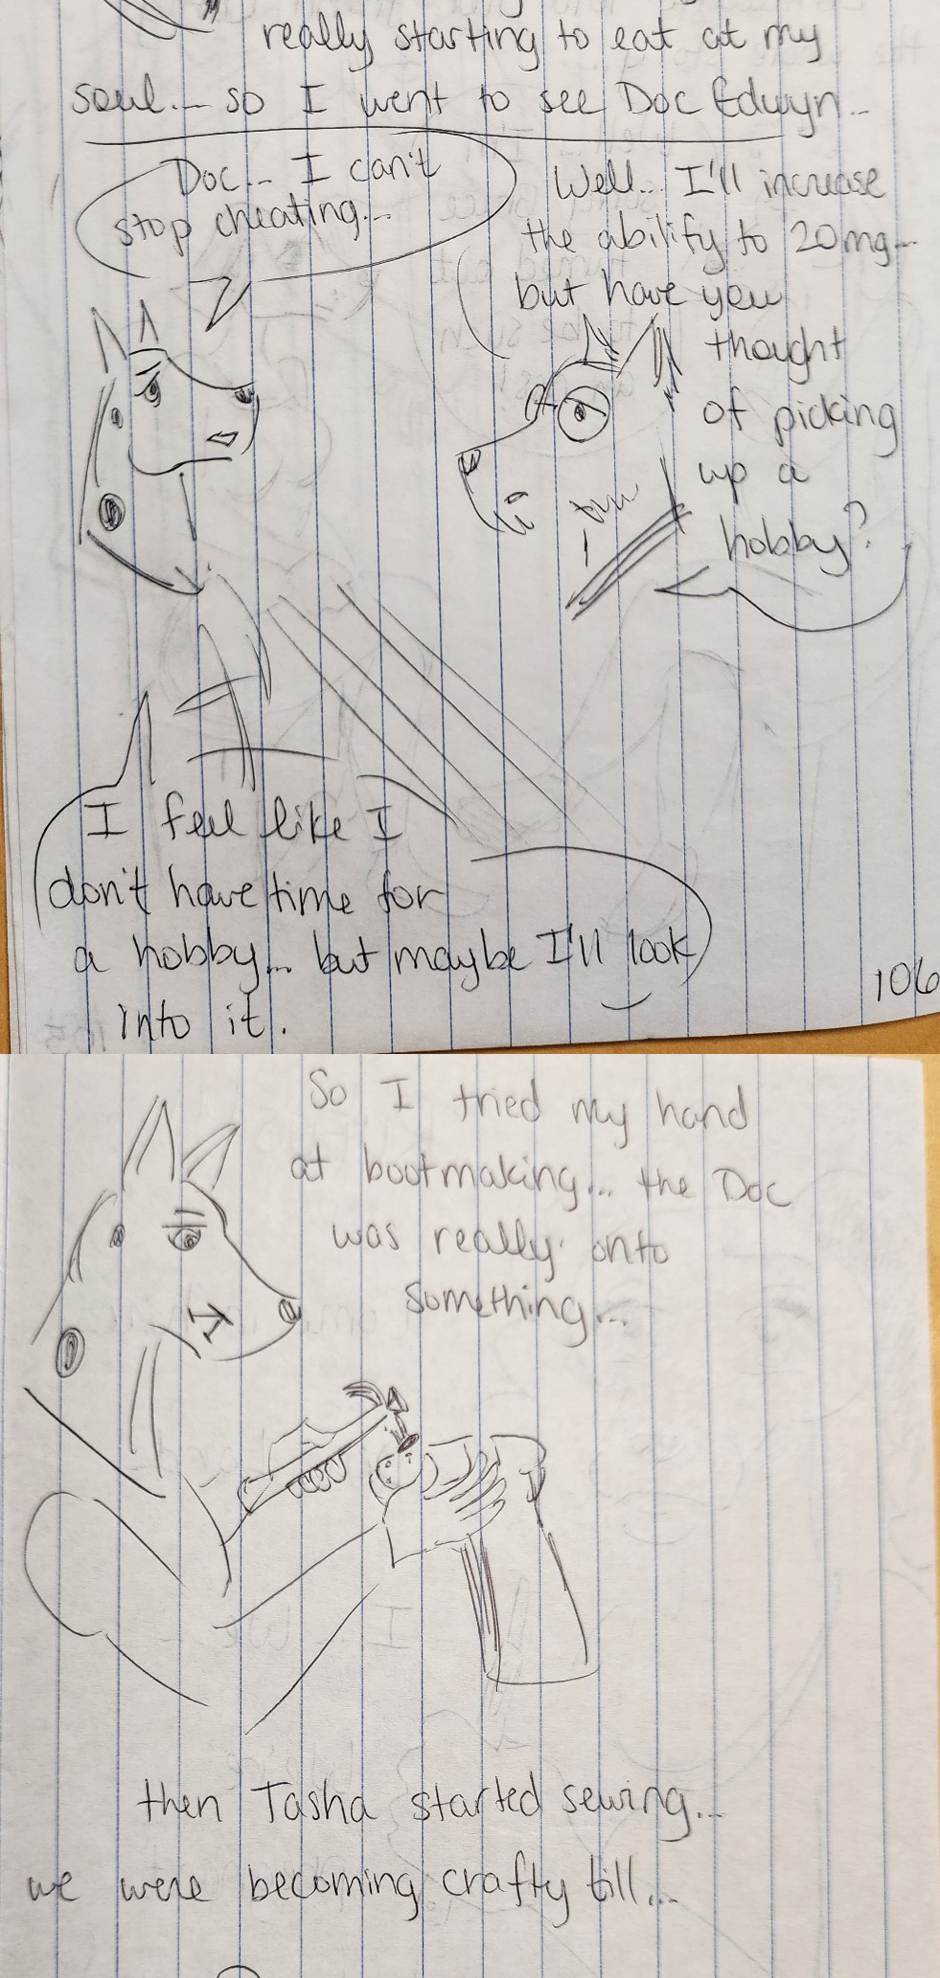 really starting to eat at my
soul... so I went to see Doc Edwyn...
Doc... I can't
stop cheating...
Well... I'll increase
the abilify to 20mg...
but have you
thought
of picking
up a
hobby?
I feel like I
don't have time for
a hobby... but maybe I'll look
into it.
106
So I tried my hand
at bootmaking... the Doc
was really onto
something...
then Tasha started sewing...
we were becoming crafty till...